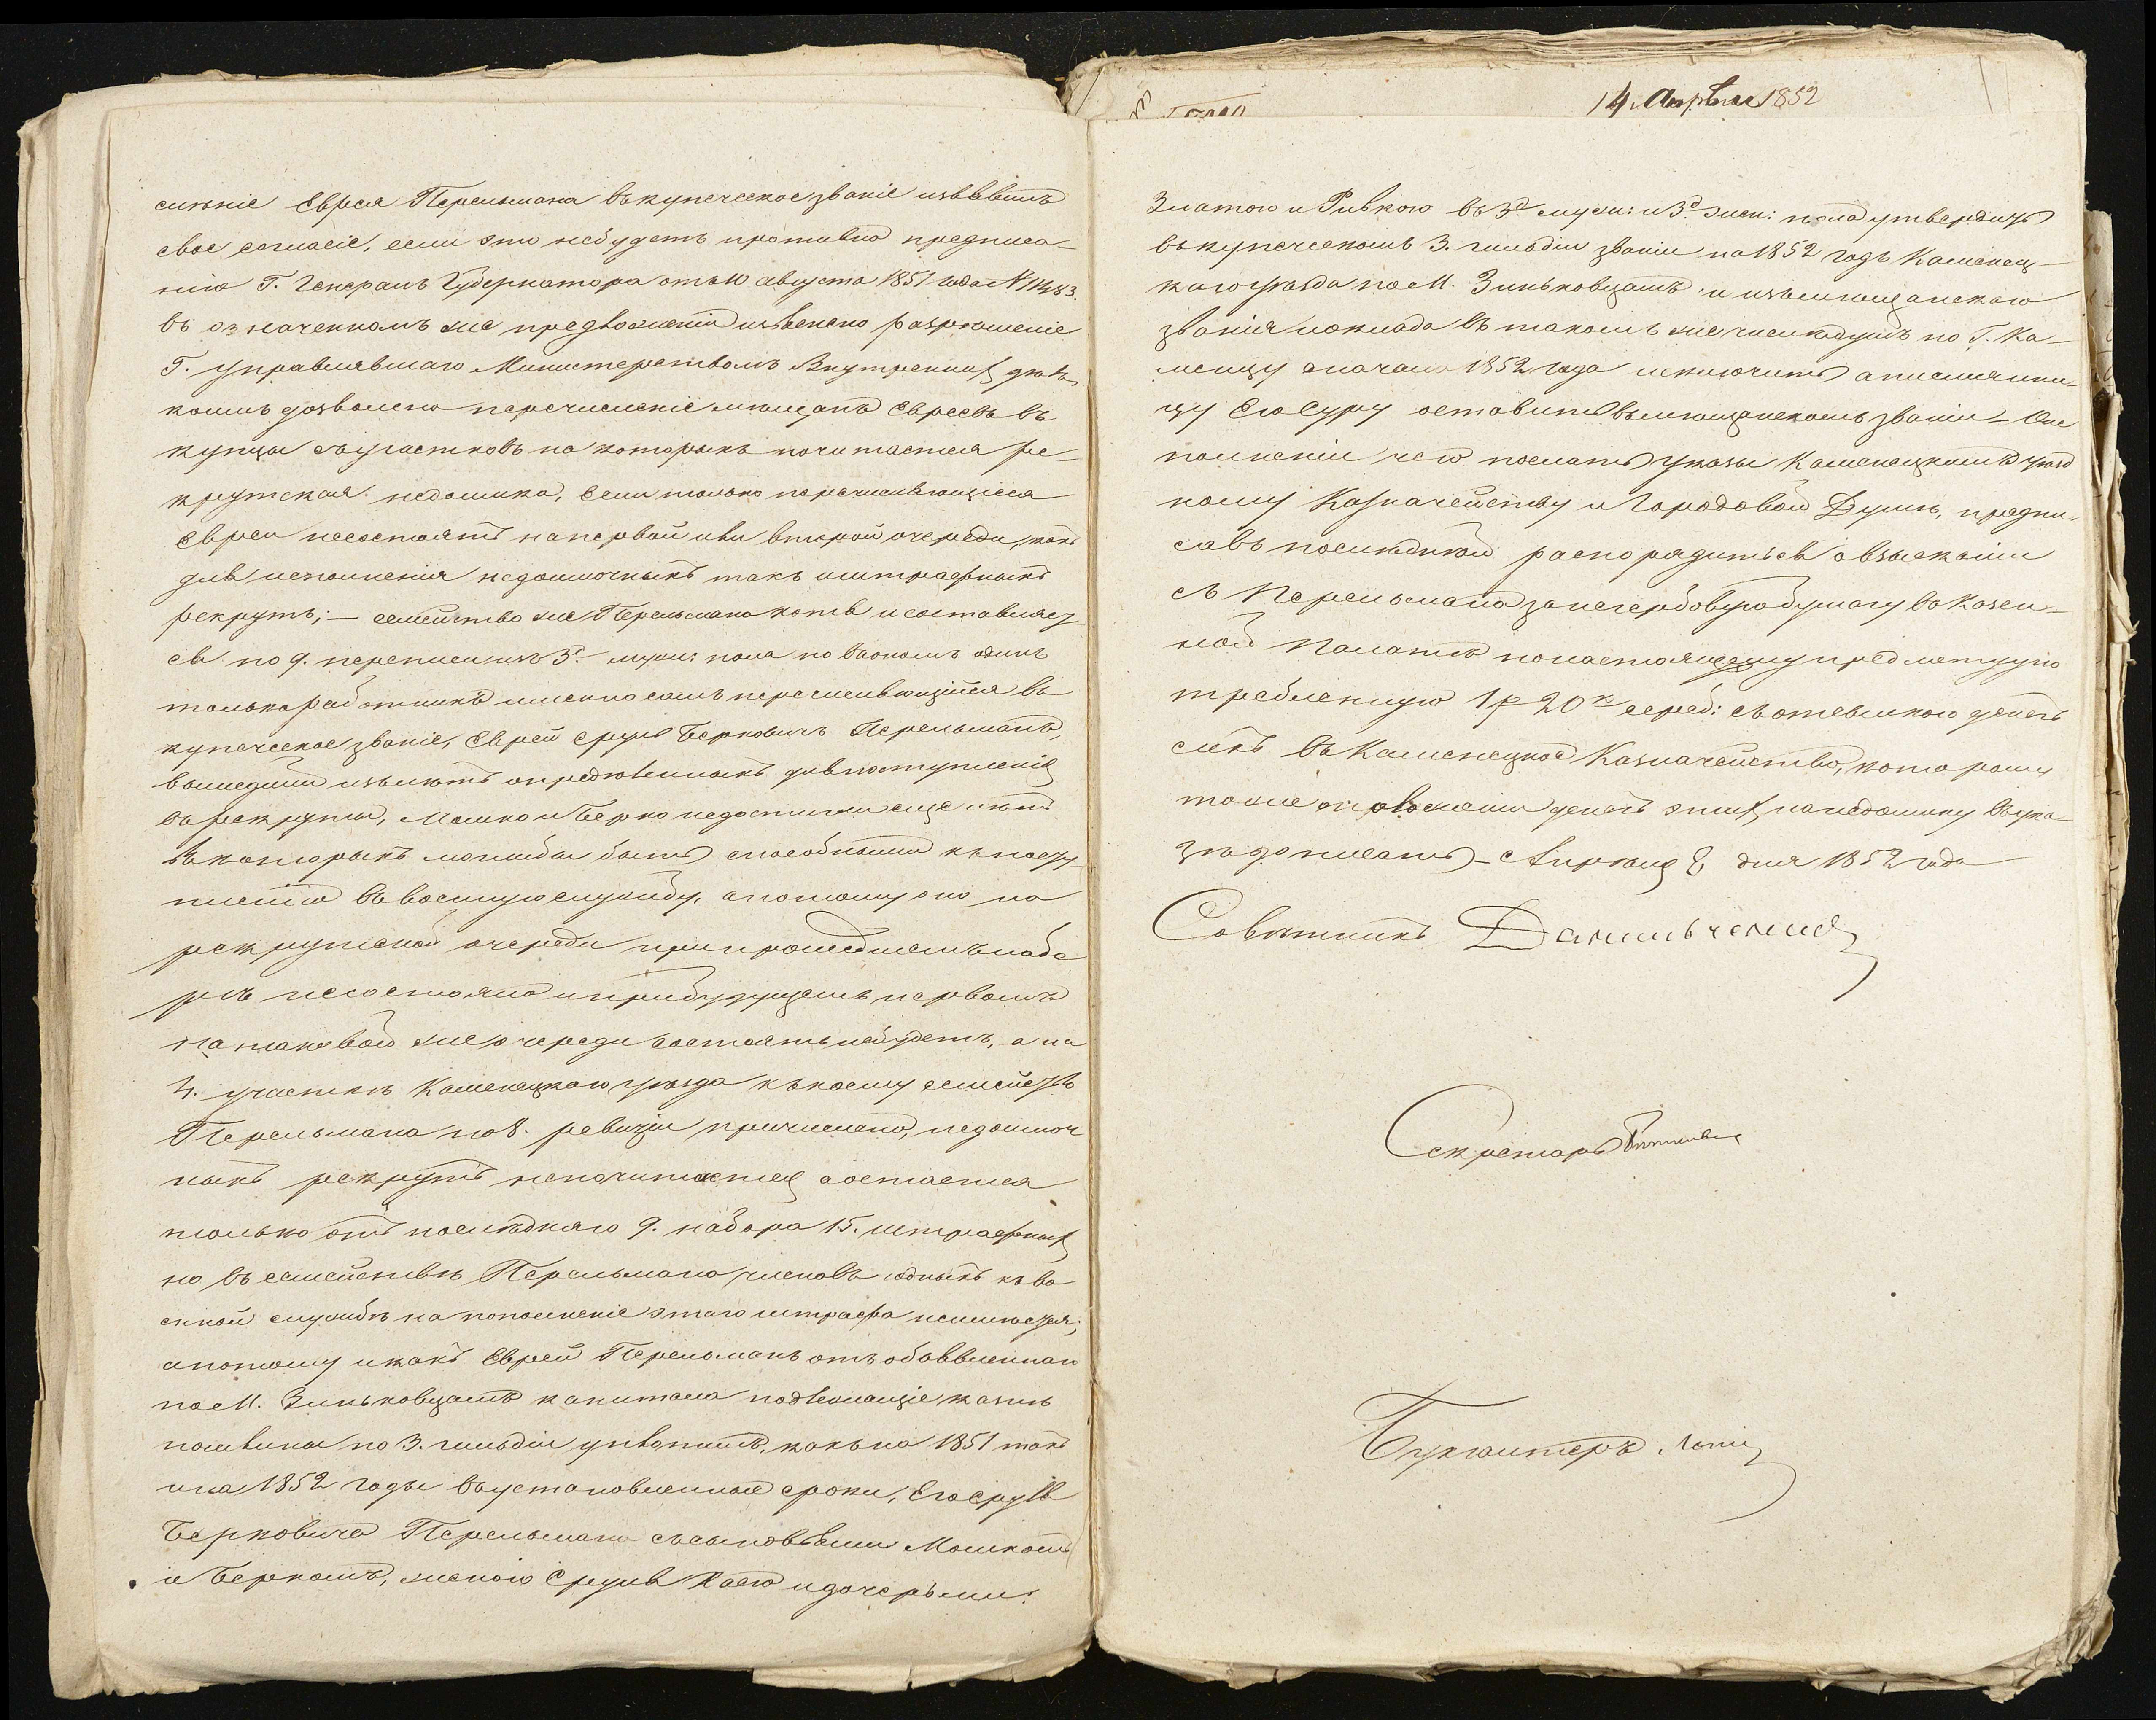 сленіе Еврея Перельмана въ купеческое званіе изъявилъ
свое согласіе, если это небудетъ противно предписа-
нію Г. Генералъ Губернатора отъ 10 августа 1851 года № 11483.
въ означенномъ же предложеніи изъяснено разрѣшеніе
Г. управлявшаго Министерствомъ Внутреннихъ дѣлъ
коимъ дозволено перечисленіе мѣщанъ Евреевъ въ
купцы съ участковъ на которыхъ почитается ре-
крутская недоимка, если только перечисляющіеся
Евреи несостоятъ на первой или второй очереди, какъ
для исполненія недоимочныхъ такъ и штрафныхъ
рекрутъ; — семейство же Перельмана хотя и составляет-
ся по 9. переписи изъ 3х муж: пола но въ ономъ одинъ
только работникъ именно самъ перечисляющійся въ
купеческое званіе, Еврей Сруль Берковичъ Перельманъ,
вышедшій изъ лѣтъ опредѣленныхъ для поступленія
въ рекруты, Мошко и Берко недостигли еще лѣтъ
въ которыхъ моглибы быть способными къ посту-
пленію въ военную службу, а потому оно на
рекрутской очереди при прошедшемъ набо
рѣ несостояло и при будущемъ первомъ
на таковой же очереди состоять небудетъ, а на
4. участкѣ Каменецкаго уѣзда къ коему семейство
Перельмана по 8. ревизіи причислено, недоимоч
ныхъ рекрутъ непочитается а остается
только отъ послѣдняго 9. набора 15. штрафныхъ
но въ семействѣ Перельмана членовъ годныхъ къ во
енной службѣ на пополненіе этаго штрафа неимѣется;
а потому и какъ Еврей Перельманъ отъ объявленнаго
по М. Зиньковцамъ капитала подлежащіе казнѣ
пошлины по 3. гильдіи уплотилъ, какъ на 1851 такъ
и на 1852 годы въ установленные сроки, Его Сруля
Берковича Перельмана съ сыновьями Мошкомъ
и Беркомъ, женою Срулѣ Хаею и дочерьми:
14 Апрѣля 1852
Златою и Ривкою въ 3х муж: и 3х жен: пола утвердить
въ купеческомъ 3. гильдіи званіи на 1852 годъ Каменец-
каго уѣзда по М. Зиньковцамъ и изъ мѣщанскаго
званія и оклада въ такомъ же числѣ душъ по Г. Ка-
менцу с начала 1852 года исключить а племянни-
цу Его Суру оставить въ мѣщанскомъ званіи — О ис
полненіи чего послать указы Каменецкимъ уѣзд
ному Казначейству и Городовой Думѣ, предпи-
савъ послѣдней распорядиться о взысканіи
съ Перельмана за негербовую бумагу въ Казен-
ной Палатѣ по настоящему предмету упо
требленную 1р 20к сереб: съ отсылкою денегъ
сихъ въ Каменецкое Казначейство, которому
тоже о взысканіи денегъ этихъ на недоимку въ ука-
зѣ дописать — Апрѣля 8 дня 1852 года
Совѣтникъ Данильченко
Секретарь
Бухгалтеръ